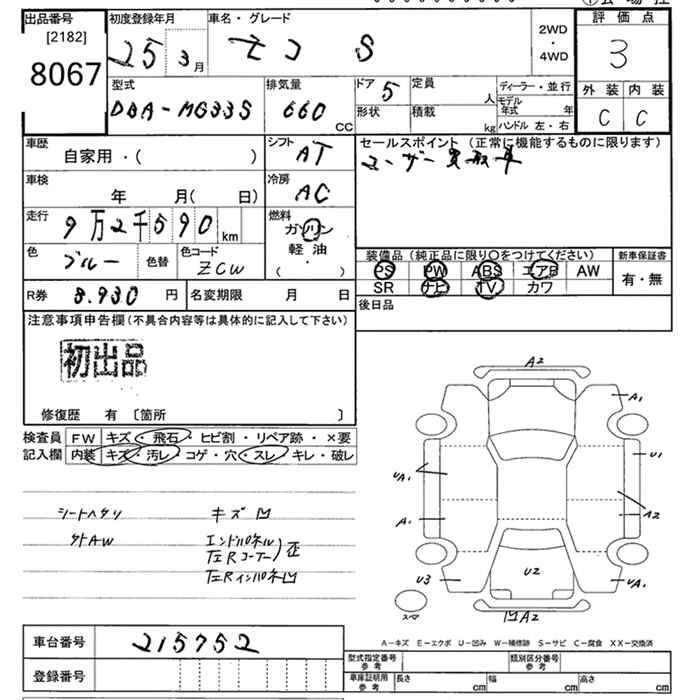 出品番号
[2182]
8067
初度登録年月
25 3月
車名・グレード
モコ S
2WD
・
4WD
評価点
3
外装 内装
C C
型式
DBA-MG33S
排気量
660 CC
ドア 5
形状
定員 人
積載 kg
ディーラー・並行
モデル年式 年
ハンドル 左・右
車歴
自家用・( )
シフト
AT
セールスポイント (正常に機能するものに限ります)
ユーザー買取車
車検
年 月( 日)
冷房
AC
走行
9万2千590km
燃料
ガソリン
軽油
( ・ )
色
ブルー
色替
色コード
ZCW
装備品(純正品に限り○をつけてください)
新車保証書
PS PW ABS エアB AW
SR ナビ TV カワ
有・無
R券 8.930 円
名変期限 月 日
後日品
注意事項申告欄(不具合内容等は具体的に記入して下さい)
初出品
修復歴 有 〔箇所 〕
検査員
記入欄
FW キズ・飛石・ヒビ割・リペア跡・×要
内装 キズ・汚レ・コゲ・穴・スレ・キレ・破レ
シートヘタリ
外AW
キズ凹
エンドパネル
左Rコーナー)歪
左Rインパネ凹
A2
A1
UA1
U1
A1
A2
U3
U2
UA1
スペア
凹A2
A-キズ E-エクボ U-凹み W-補修跡 S-サビ C-腐食 XX-交換済
車台番号
215752
登録番号
型式指定番号
参考
類別区分番号
参考
車庫証明用
参考
長さ cm
幅 cm
高さ cm